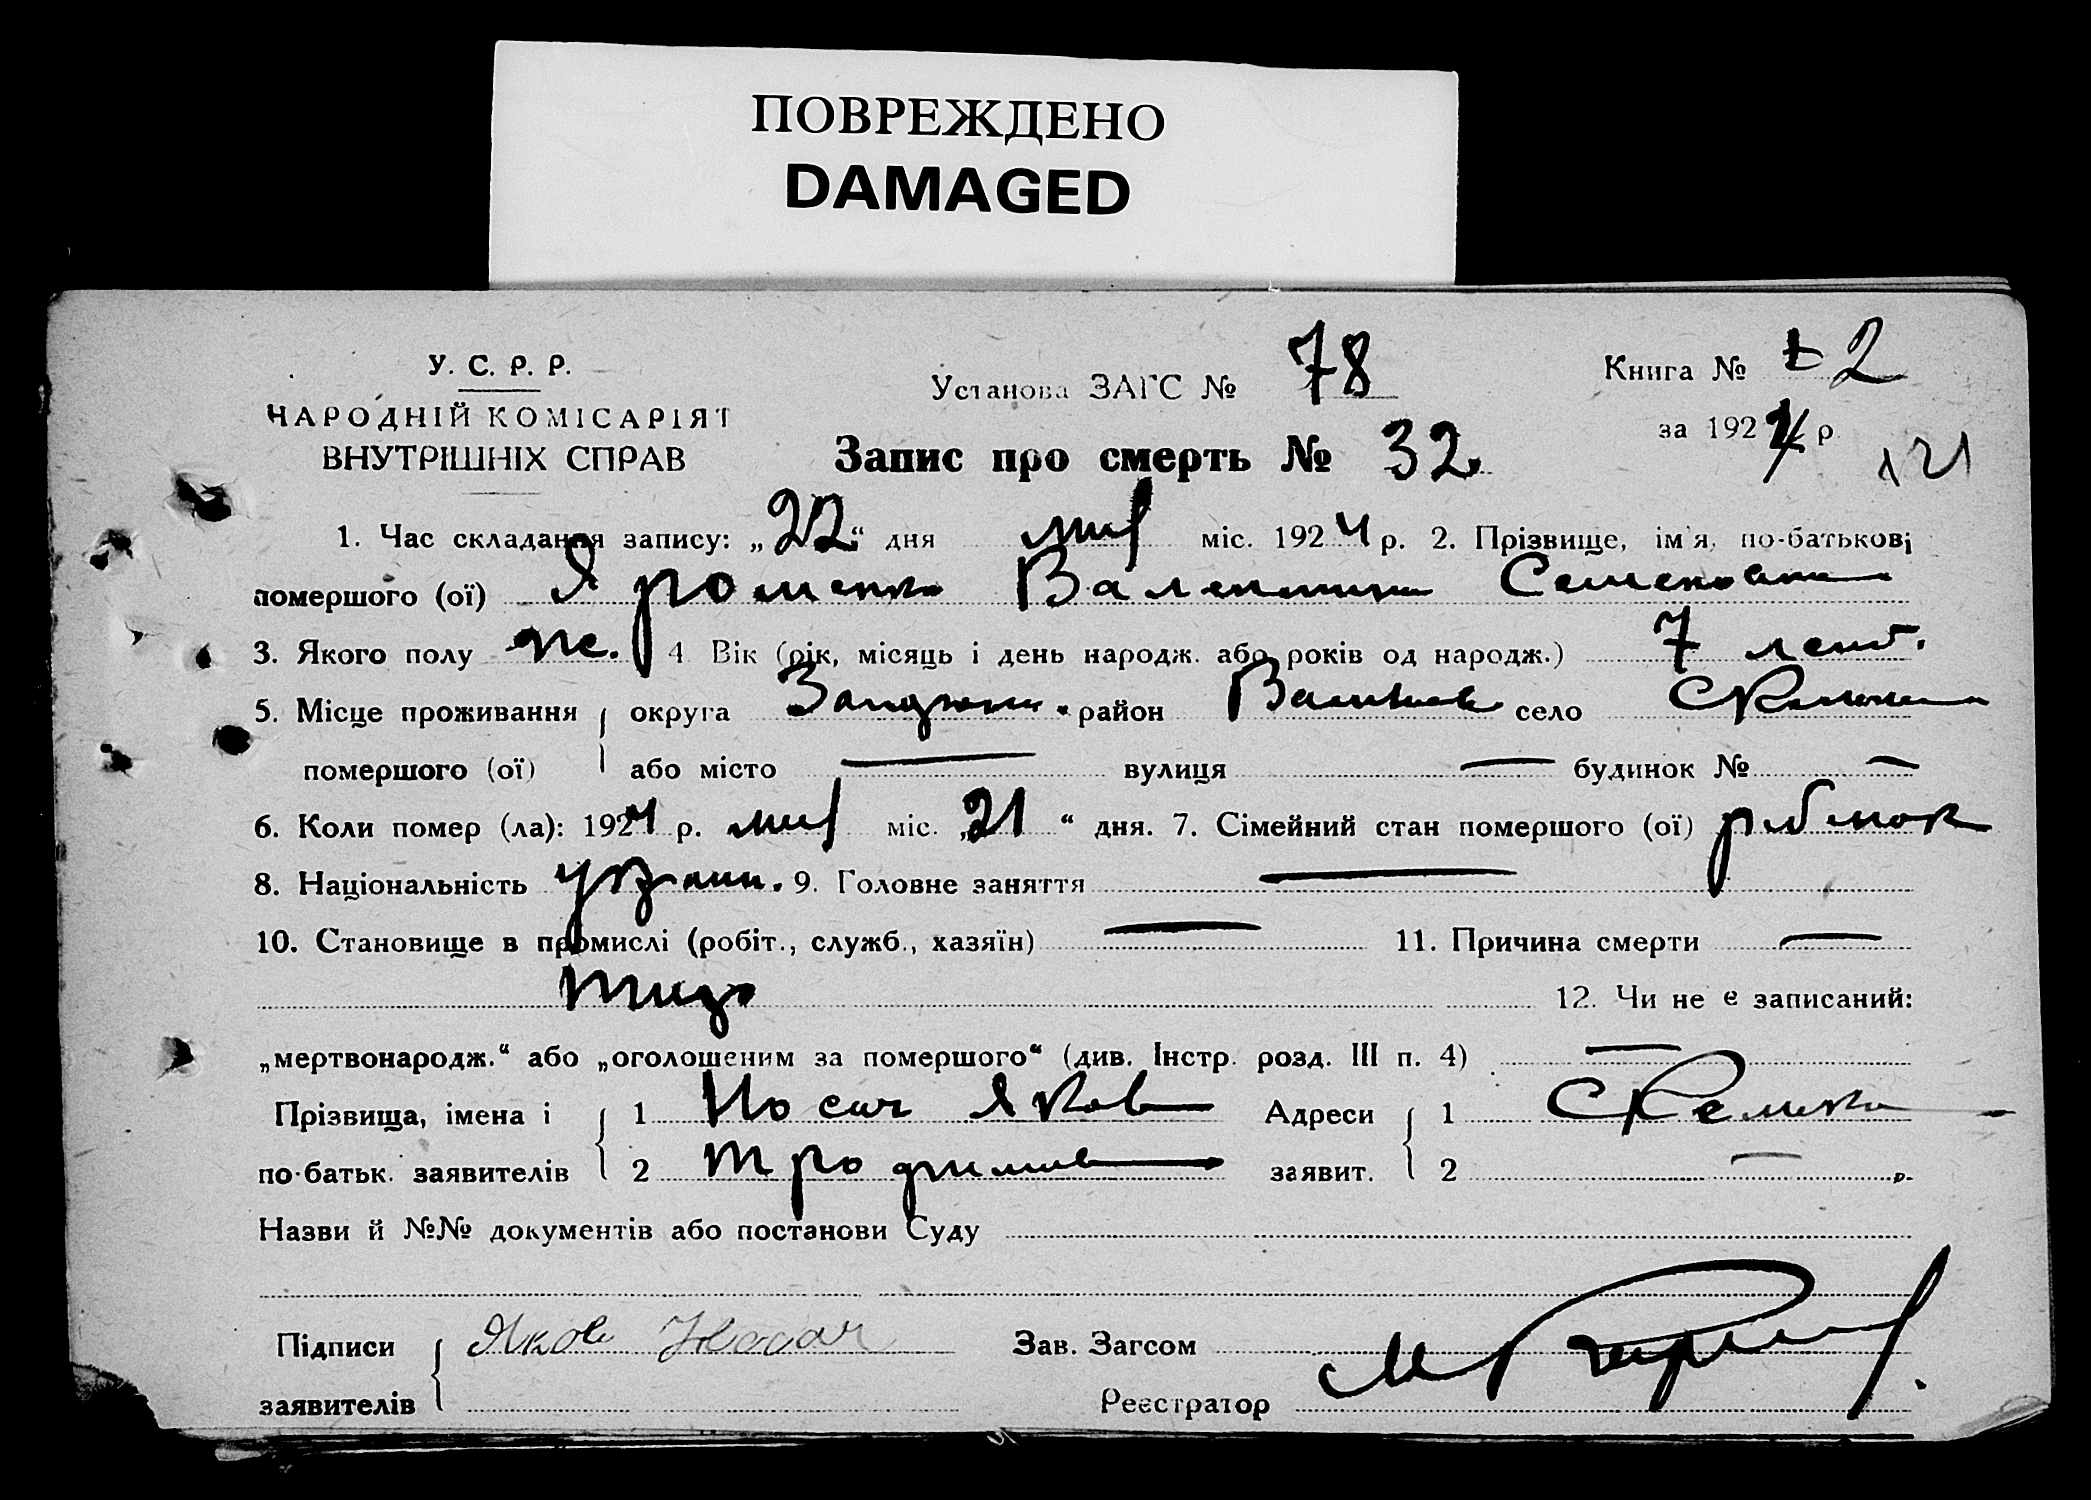 ПОВРЕЖДЕНО
DAMAGED
У. С. Р. Р.
НАРОДНІЙ КОМІСАРІЯТ
ВНУТРІШНІХ СПРАВ
Установа ЗАГС № 78
Книга № 2
за 1924 р.
121
Запис про смерть № 32
1. Час складання запису: „22“ дня май міс. 1924 р. 2. Прізвище, ім'я, по-батькові
помершого (ої) Яроменко Валентина Семеновна
3. Якого полу ж. 4 Вік (рік, місяць і день народж. або років од народж.) 7 лет.
5. Місце проживання округа район село
помершого (ої) або місто — вулиця — будинок № —
6. Коли помер (ла): 1924 р. май міс. „21“ дня. 7. Сімейний стан помершого (ої) ребенок
8. Національність украин. 9. Головне заняття —
10. Становище в промислі (робіт., служб., хазяїн) — 11. Причина смерти —
12. Чи не є записаний:
„мертвонародж.“ або „оголошеним за помершого“ (див. Інстр. розд. III п. 4) —
Прізвища, імена і 1 Носач Яков Адреси 1
по-батьк. заявителів 2 Трофимов заявит. 2 —
Назви й №№ документів або постанови Суду
Підписи Яков Носач Зав. Загсом
заявителів Реєстратор